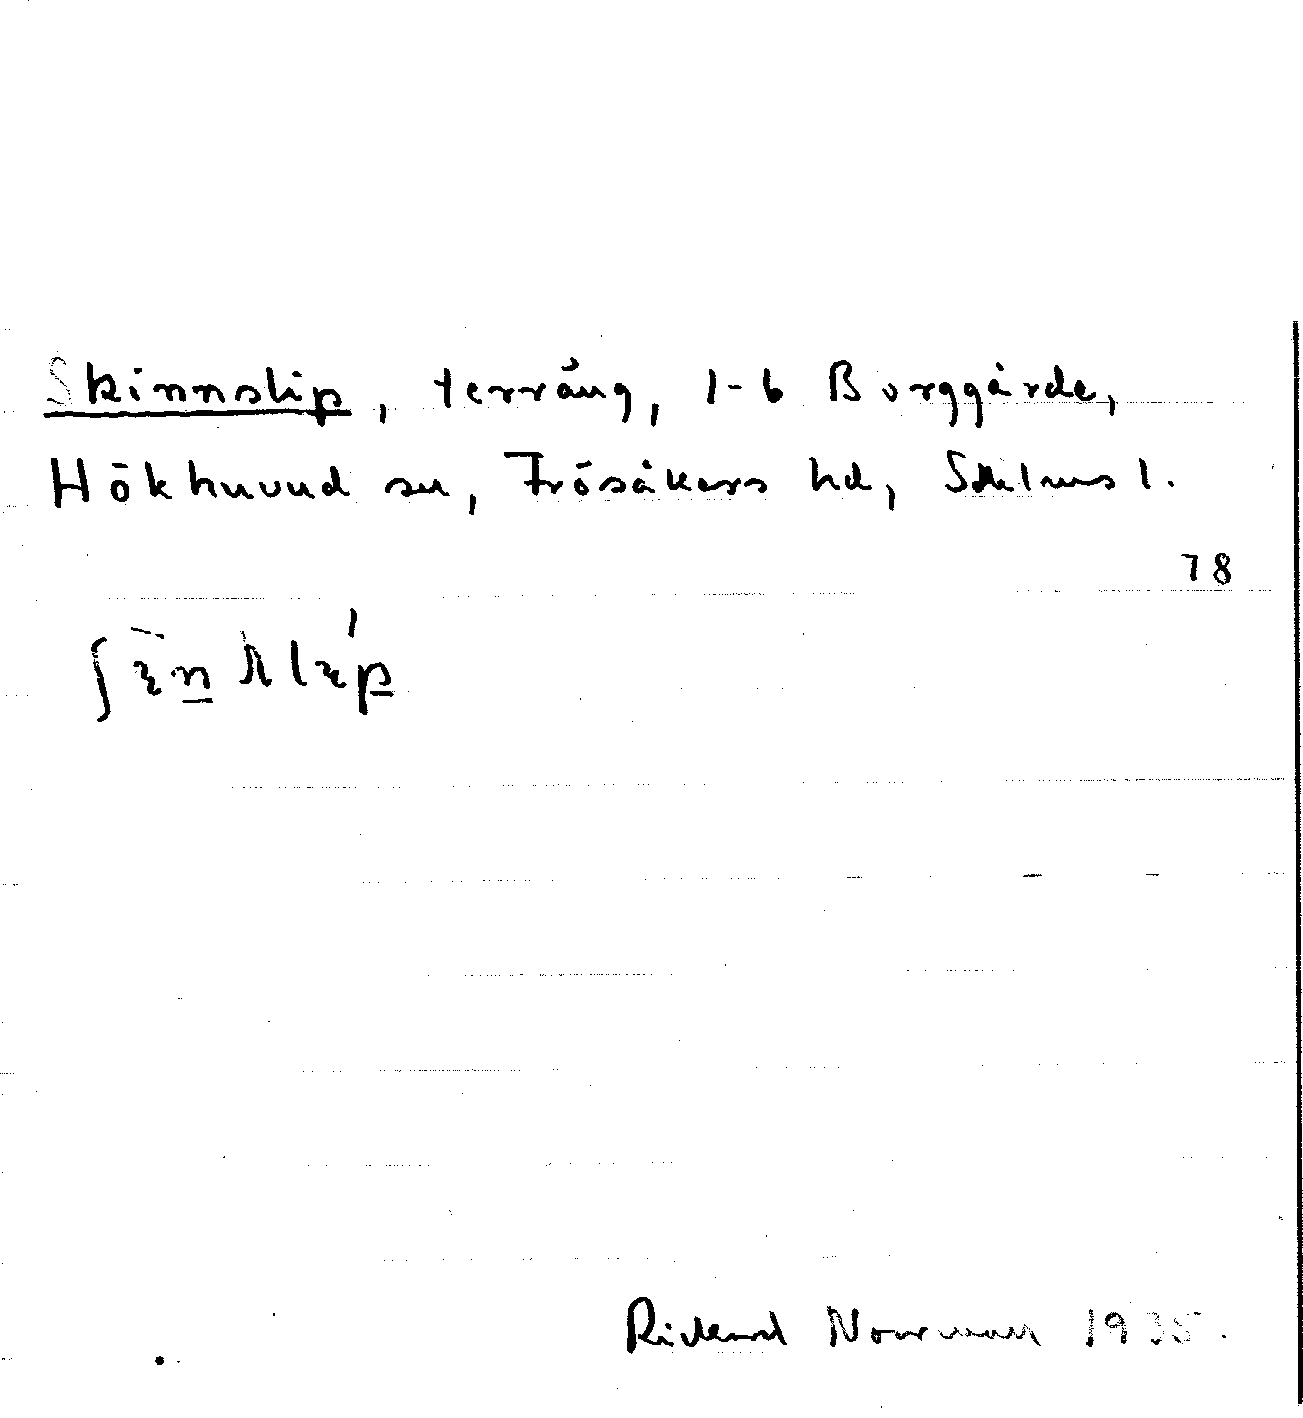 Skinnslip, terräng, 1-6 Borggärde,
Hökhuvud sn, Frösåkers hd, Sthlms l.
78
Rickard Norman 1935.